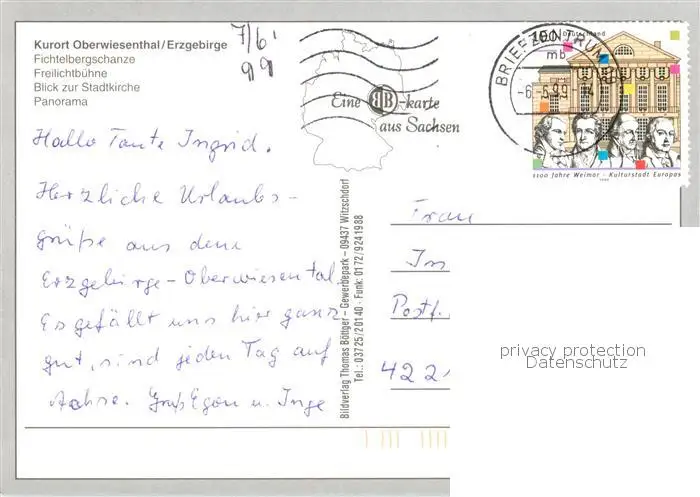 Kurort Oberwiesenthal/Erzgebirge
Fichtelbergschanze
Freilichtbühne
Blick zur Stadtkirche
Panorama
7/6.
99
Eine BB-karte
aus Sachsen
BRIEFZENTRUM
mb
-6.-5.99
100 Deutschland
1100 Jahre Weimar - Kulturstadt Europas
1999
Hallo Tante Ingrid.
Herzliche Urlaubs-
grüße aus dem
Erzgebirge-Oberwiesental.
Es gefällt uns hier ganz
gut, sind jeden Tag auf
Achse. Gruß Egon u. Inge
Bildverlag Thomas Böttger – Gewerbepark – 09437 Witzschdorf
Tel.: 03725/20140 · Funk: 0172/9241988
Frau
In
Postf.
422
privacy protection
Datenschutz